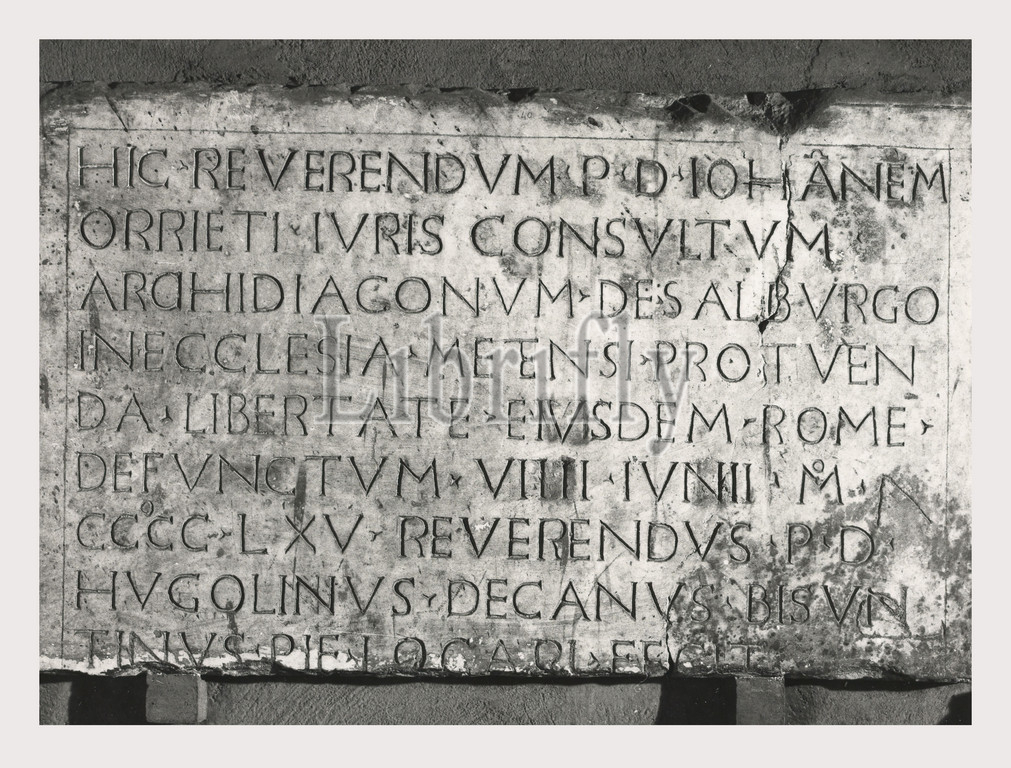 HIC · REVERENDVM · P · D · IOHĀNEM
ORRIETI · IVRIS CONSVLTVM
ARCHIDIACONVM · DE SALBVRGO
IN ECCLESIA · METENSI · PRO TVEN
DA · LIBERTATE · EIVSDEM · ROME ·
DEFVNCTVM · VIIII · IVNII · M̊ ·
CCC̊CC · LXV · REVERENDVS · P · D ·
HVGOLINVS · DECANVS · BISVN
TINVS PIE · LOCARI · FECIT
Librifly